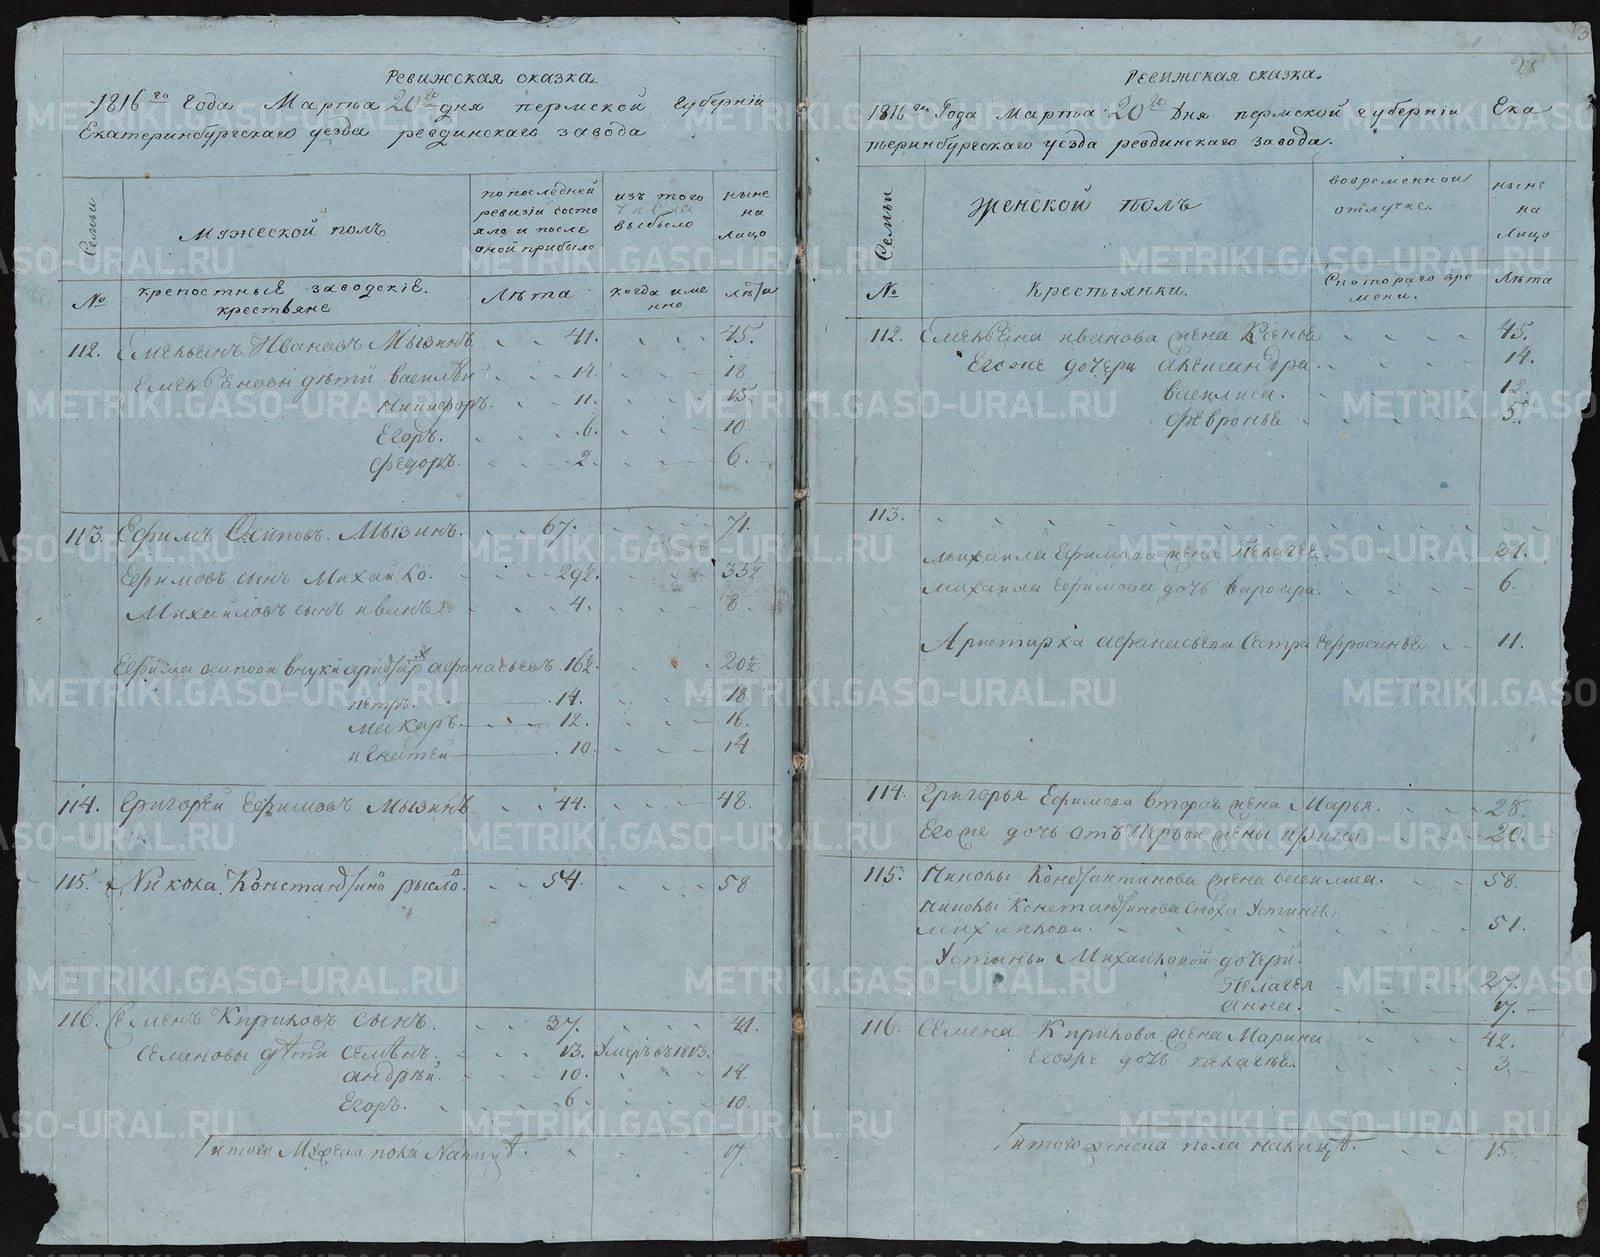 Ревижская сказка.
1816го Года Марта 20го дня пермской Губерніи
Екатеринбургскаго уезда ревдинскаго завода
Семьи
Мужеской полъ
по последней ревизіи состояло и после оной прибыло
изъ того числа выбыло
ныне на лицо
№
крепостные заводскіе крестьяне
Лѣта
когда имянно
лѣта
112. Емельянъ Ивановъ Мызинъ 41. 45.
Емельяновы дѣти василей 14 18
никифоръ. 11. 15.
Егоръ. 6. 10
федоръ. 2. 6.
113. Ефимъ Осиповъ Мызинъ. 67. 71.
Ефимовъ сынъ Михайло. 29½. 33½
Михайловъ сынъ иванъ 4. 8.
Ефима осипова внуки аристархъ афанасьевъ 16½. 20½
петръ. 14. 18.
макаръ 12. 16.
игнатей 10. 14
114. Григорей Ефимовъ Мызинъ 44. 48.
115. Никола Константиновъ 54. 58.
116. Семенъ Кириловъ сынъ. 37. 41.
Семеновы дѣти семенъ. 13. Умеръ въ 1813.
андрей. 10. 14.
Егоръ. 6 10.
итого Мужска пола Налицѣ. 17
Ревижская сказка.
1816го Года Марта 20го Дня пермской губерніи Ека
теринбургскаго уезда ревдинскаго завода.
Семьи
Женской полъ
вовременной отлучке.
ныне на Лицо
№
Крестьянки.
Скотораго времени.
Лѣта
112. Емельяна иванова жена Ксенья 45.
Егоже дочери александра. 14.
василиса. 12.
февронья 5.
113.
михаила Ефимова жена Пелагея 31.
михаила Ефимова дочь варвара. 6.
Аристарха афанасьева Сестра Ефросинья 11.
114. Григорья Ефимова вторая жена Марья. 28.
Егоже дочь отъ первой жены ирина. 20.
115. Николы Константинова жена василиса. 58.
Николы Константинова сноха Устинья
михайлова. 51.
Устиньи Михайловой дочери.
Пелагея 27.
анна. 17.
116. Семена Кирилова жена Марина 42.
Егоже дочь пелагея. 3.
итого женска пола налицѣ. 15.
METRIKI.GASO-URAL.RU